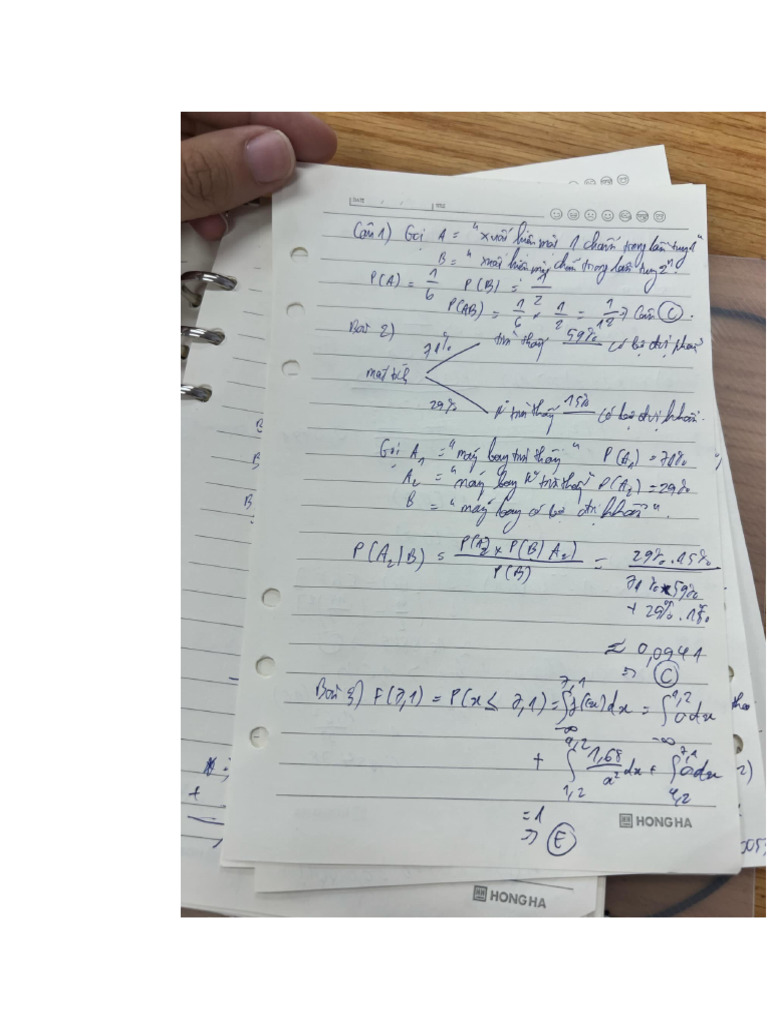 Câu 1) Gọi A = "xuất hiện mặt 1 chấm trong lần tung 1"
B = "xuất hiện mặt chẵn trong lần tung 2".
P(A) = 1/6 P(B) = 1/2
P(AB) = 1/6 × 1/2 = 1/12 => Câu C.
Bài 2)
71% tìm thấy 59% có bộ định
mất tích
29% K° tìm thấy 15% có bộ định
Gọi A₁ = "máy bay tìm thấy" P(A₁) = 71%
A₂ = "máy bay K° tìm thấy" P(A₂) = 29%
B = "máy bay có bộ định".
P(A₂|B) = P(A₂) × P(B|A₂) / P(B) = 29%.15% / 71% × 59% + 29%.15%
≈ 0,0941
=> C
Bài 3) F(7,1) = P(x ≤ 7,1) = ∫_{-∞}^{7,1} f(x)dx = ∫_{-∞}^{1,2} 0dx
+ ∫_{1,2}^{4,2} 1,68/x² dx + ∫_{4,2}^{7,1} 0dx
= 1
=> E
HONG HA
HONG HA